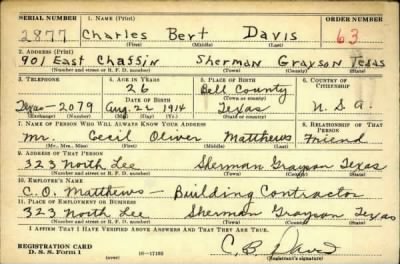 SERIAL NUMBER 1. NAME (Print) ORDER NUMBER
2877 Charles Bert Davis 63
(First) (Middle) (Last)
2. ADDRESS (Print)
901 East Chassin Sherman Grayson Texas
(Number and street or R. F. D. number) (Town) (County) (State)
3. TELEPHONE 4. AGE IN YEARS 5. PLACE OF BIRTH 6. COUNTRY OF CITIZENSHIP
26 Bell County
DATE OF BIRTH (Town or county)
2079 Aug. 22 1914 Texas U.S.A.
(Exchange) (Number) (Mo.) (Day) (Yr.) (State or country)
7. NAME OF PERSON WHO WILL ALWAYS KNOW YOUR ADDRESS 8. RELATIONSHIP OF THAT PERSON
Mr. Cecil Oliver Matthews Friend
(Mr., Mrs., Miss) (First) (Middle) (Last)
9. ADDRESS OF THAT PERSON
323 North Lee Sherman Grayson Texas
(Number and street or R. F. D. number) (Town) (County) (State)
10. EMPLOYER'S NAME
C.O. Matthews — Building Contractor
11. PLACE OF EMPLOYMENT OR BUSINESS
323 North Lee Sherman Grayson Texas
(Number and street or R. F. D. number) (Town) (County) (State)
I AFFIRM THAT I HAVE VERIFIED ABOVE ANSWERS AND THAT THEY ARE TRUE.
C B Davis
REGISTRATION CARD
D. S. S. Form 1 (over) (Registrant's signature)